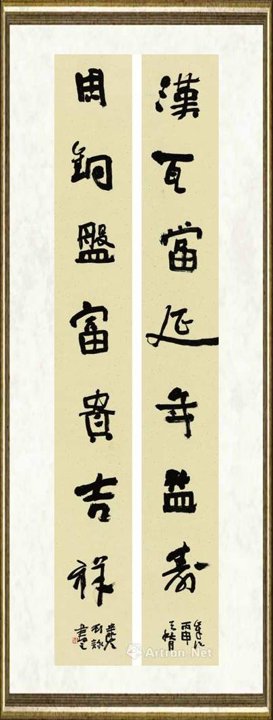 漢瓦當延年益壽
周銅盤富貴吉祥
Artron.Net